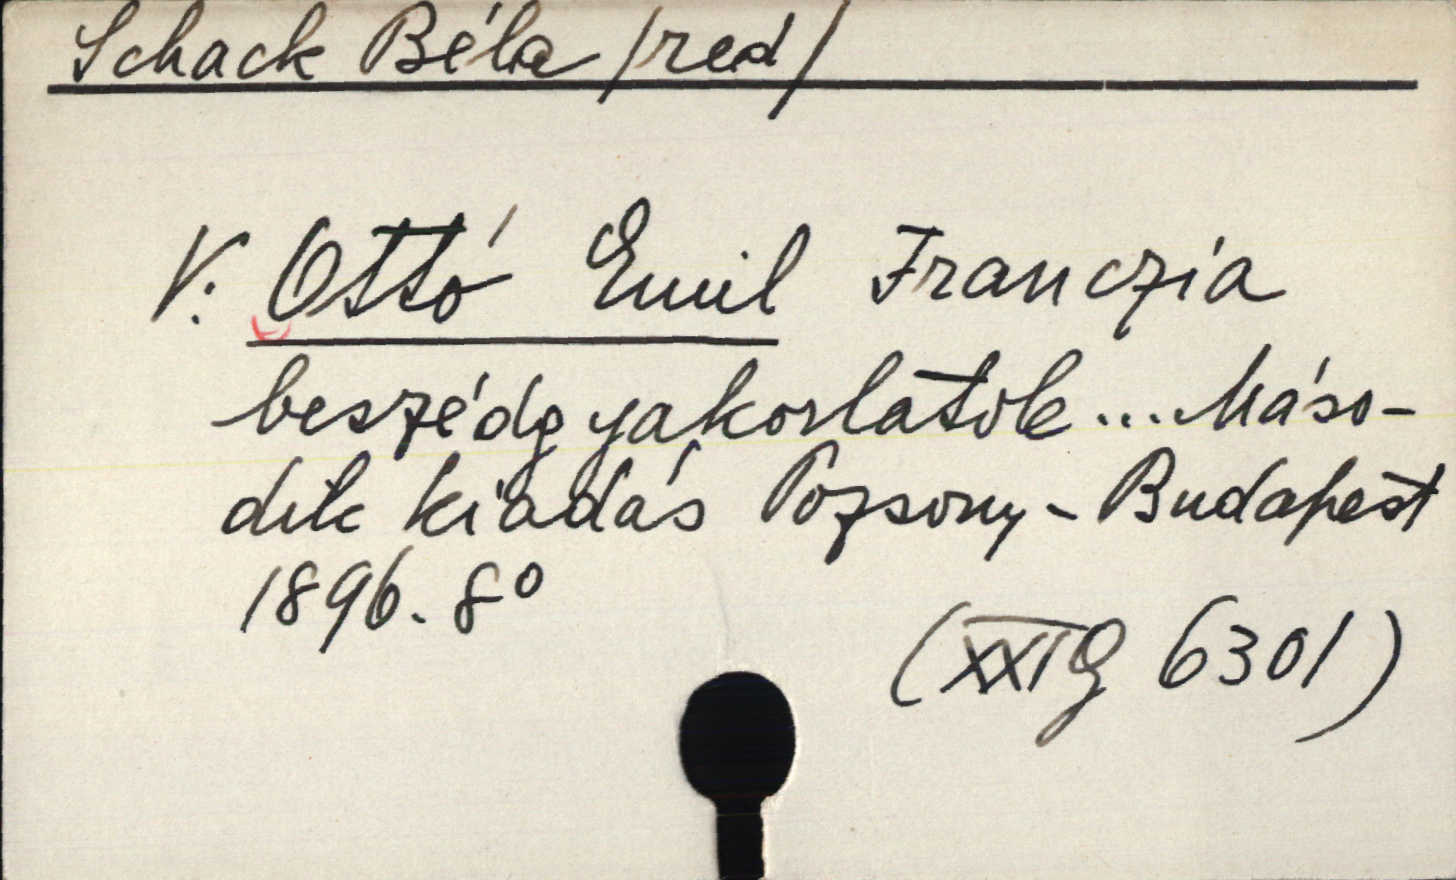 Schack Béla /red/
V. Ottó Emil Franczia
beszédgyakorlatok ... Máso-
dik kiadás Pozsony - Budapest
1896. 8°
(XXI G 6301)